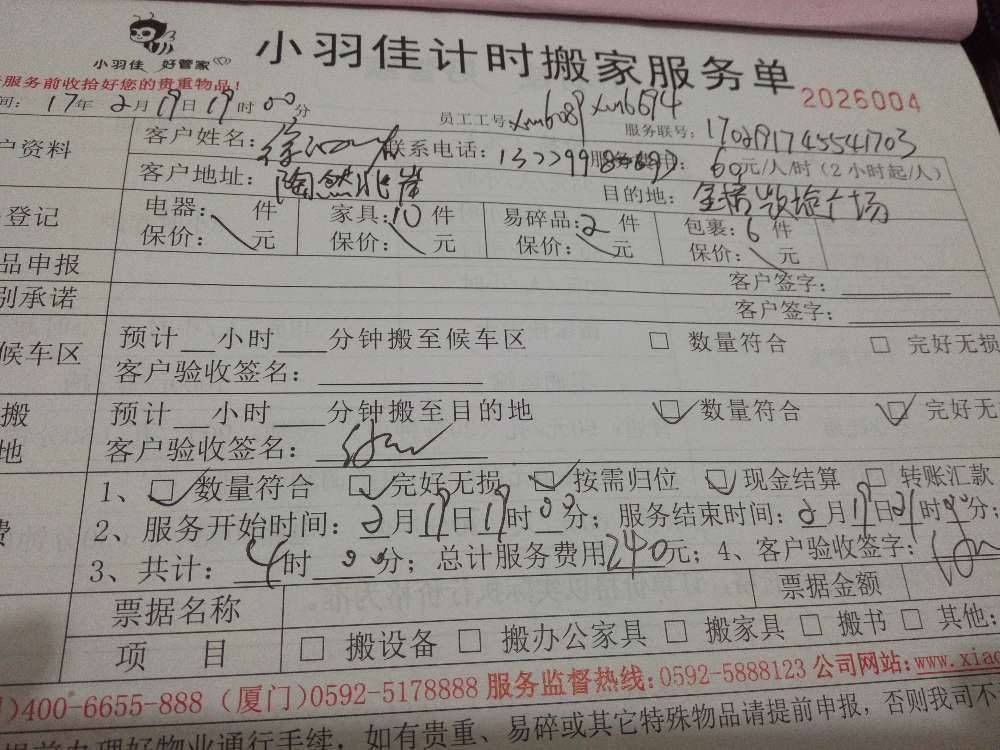 小羽佳 好管家
小羽佳计时搬家服务单
服务前收拾好您的贵重物品!
2026004
间: 17年2月19日19时00分
员工工号: xm6089 xm6694
服务联号: 1702191745541703
户资料
客户姓名: 徐
联系电话:
服务费用: 60元/人/时(2小时起/人)
客户地址: 陶然
目的地:
登记
电器: 件
家具: 10件
易碎品: 2件
包裹: 6件
保价: 元
保价: 元
保价: 元
保价: 元
品申报
客户签字:
别承诺
客户签字:
候车区
预计 小时 分钟搬至候车区
数量符合
完好无损
客户验收签名:
搬
地
预计 小时 分钟搬至目的地
数量符合
完好无
客户验收签名:
费
1、 数量符合 完好无损 按需归位 现金结算 转账汇款
2、服务开始时间: 2月19日19时00分; 服务结束时间: 2月19日21时00分;
3、共计: 4时00分; 总计服务费用240元; 4、客户验收签字:
票据名称
票据金额
项 目
搬设备 搬办公家具 搬家具 搬书 其他:
)400-6655-888 (厦门)0592-5178888 服务监督热线:0592-5888123 公司网站:www.xiao
提前办理好物业通行手续, 如有贵重、易碎或其它特殊物品请提前申报, 否则我司不